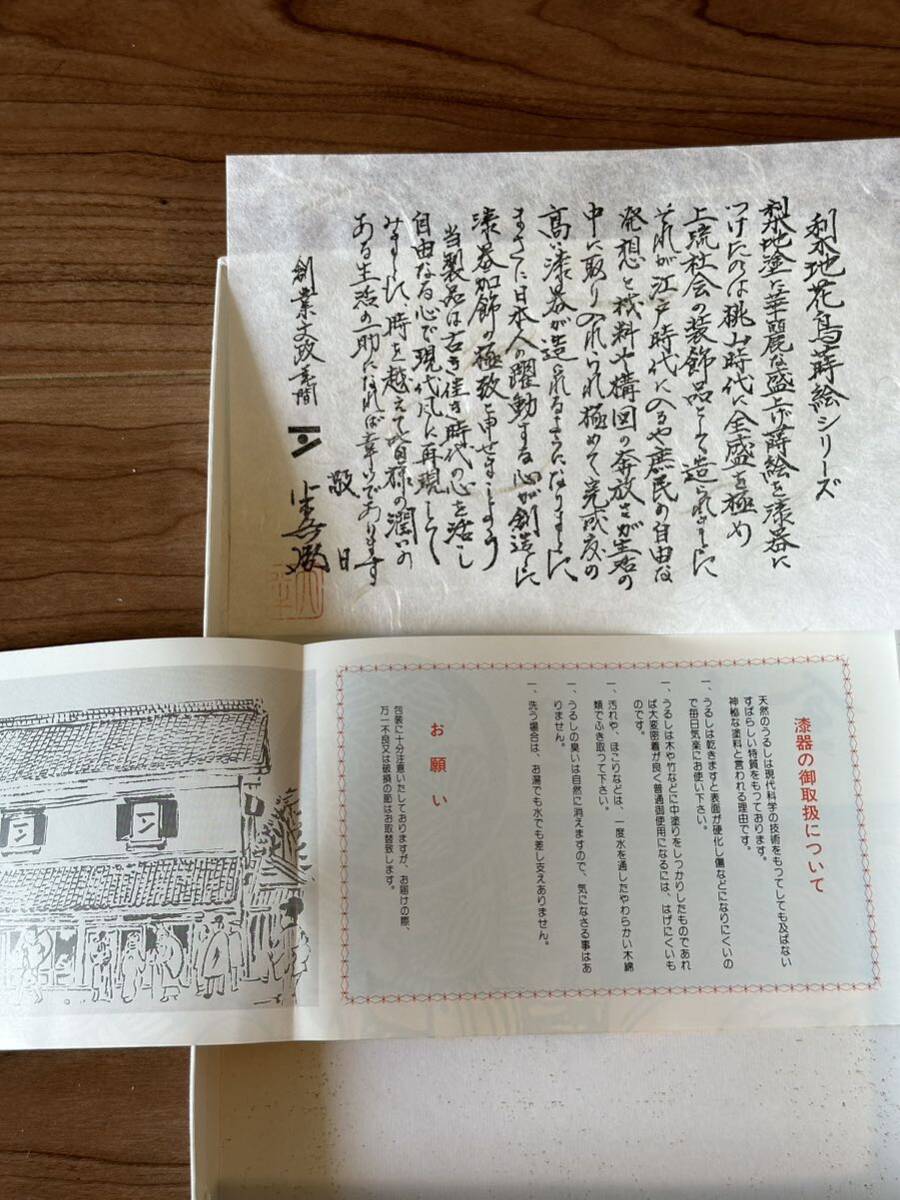 梨地花鳥蒔絵シリーズ
梨地塗に華麗な盛上げ蒔絵を漆器に
つけたのは桃山時代に全盛を極め
上流社会の装飾品として造られました
それが江戸時代に入るや庶民の自由な
発想と材料や構図の奔放さが生活の
中に取り入れられ極めて完成度の
高い漆器が造られるようになりました
まさに日本人の躍動する心が創造した
漆器加飾の極致と申せましょう
当製品は古き佳き時代の心を活し
自由なる心で現代風に再現して
みました、時を越えて皆様の潤いの
ある生活の一助になれば幸いであります
敬白
創業文政年間
漆器の御取扱について
天然のうるしは現代科学の技術をもってしても及ばない
すばらしい特質をもっております。
神秘な塗料と言われる理由です。
一、うるしは乾きますと表面が硬化し傷などになりにくいの
で毎日気楽にお使い下さい。
一、うるしは木や竹などに中塗りをしっかりしたものであれ
ば大変密着が良く普通御使用になるには、はげにくいも
のです。
一、汚れや、ほこりなどは、一度水を通したやわらかい木綿
類でふき取って下さい。
一、うるしの臭いは自然に消えますので、気になさる事はあ
りません。
一、洗う場合は、お湯でも水でも差し支えありません。
お願い
包装に十分注意いたしておりますが、お届けの際、
万一不良又は破損の節はお取替致します。